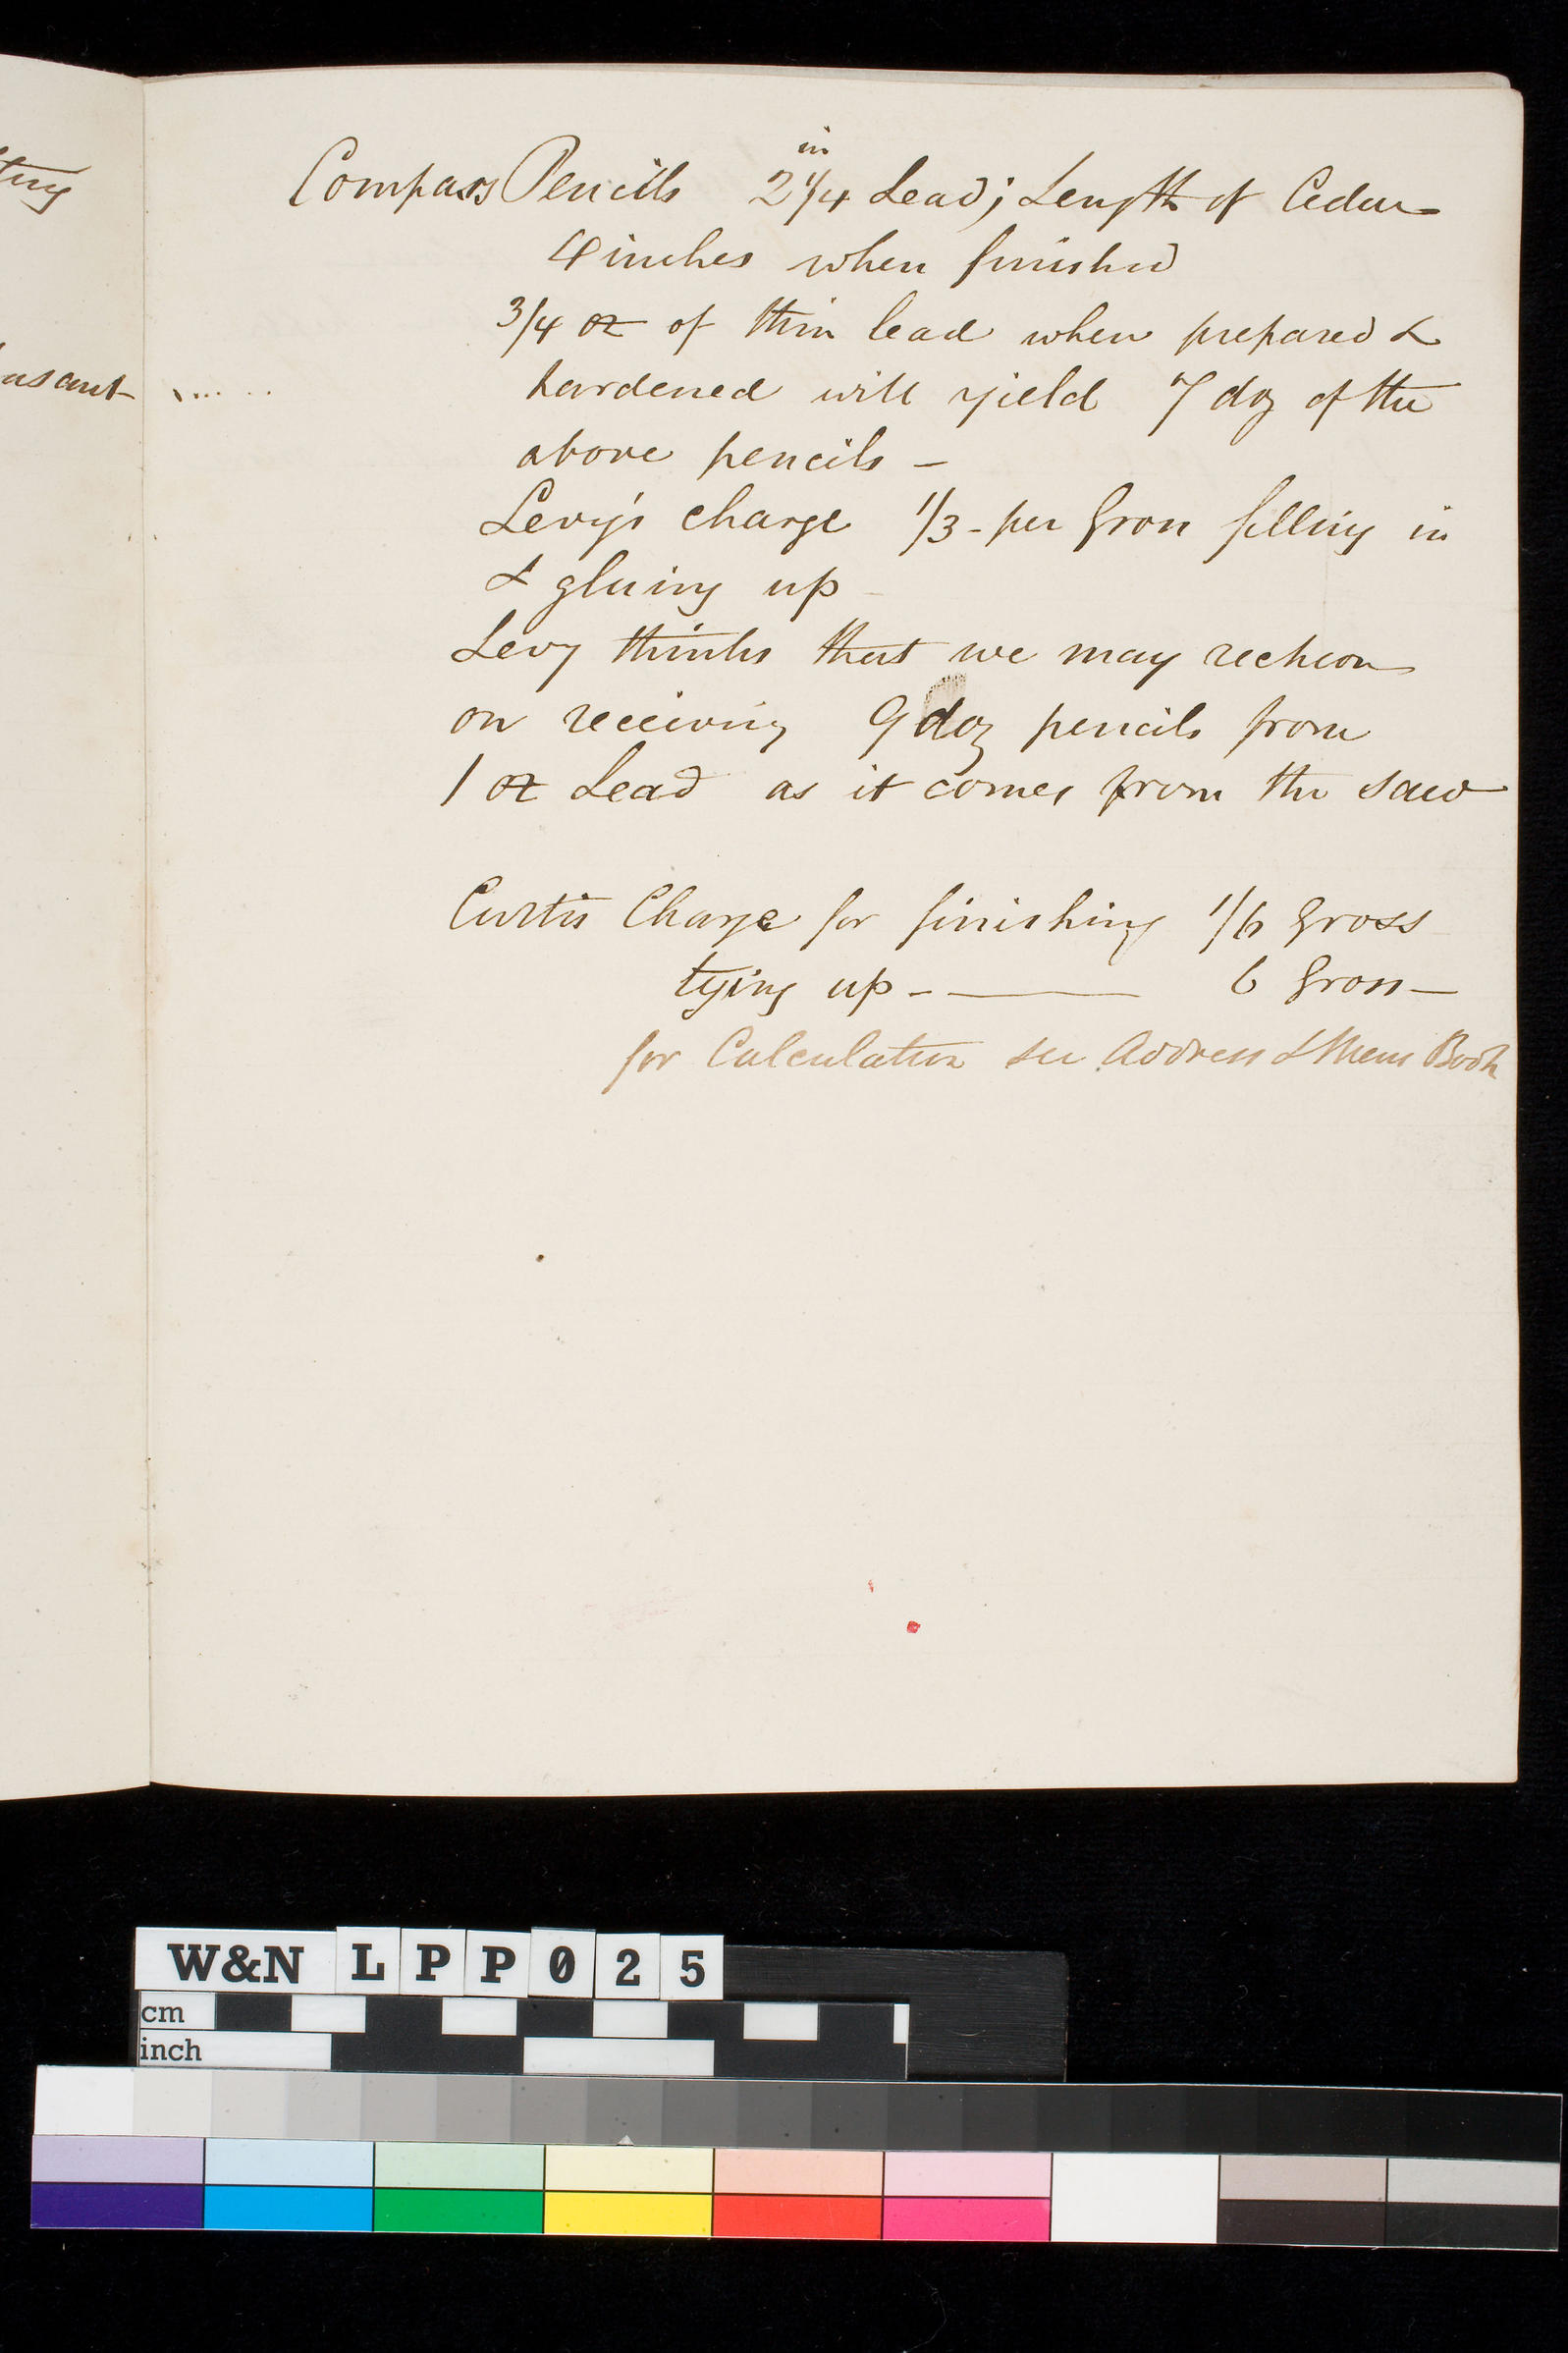 Compass Pencils 2 1/4 in Lead; Length of Cedar
4 inches when finished
3/4 oz of thin lead when prepared &
hardened will yield 7 doz of the
above pencils –
Levy's charge 1/3 - per Gross filling in
& gluing up –
Levy thinks that we may reckon
on receiving 9 doz pencils from
1 oz Lead as it comes from the saw
Curtis Charge for finishing 1/6 Gross
tying up - —— 6 Gross —
for Calculation see Address & Mem Book
W&N LPP025
cm
inch